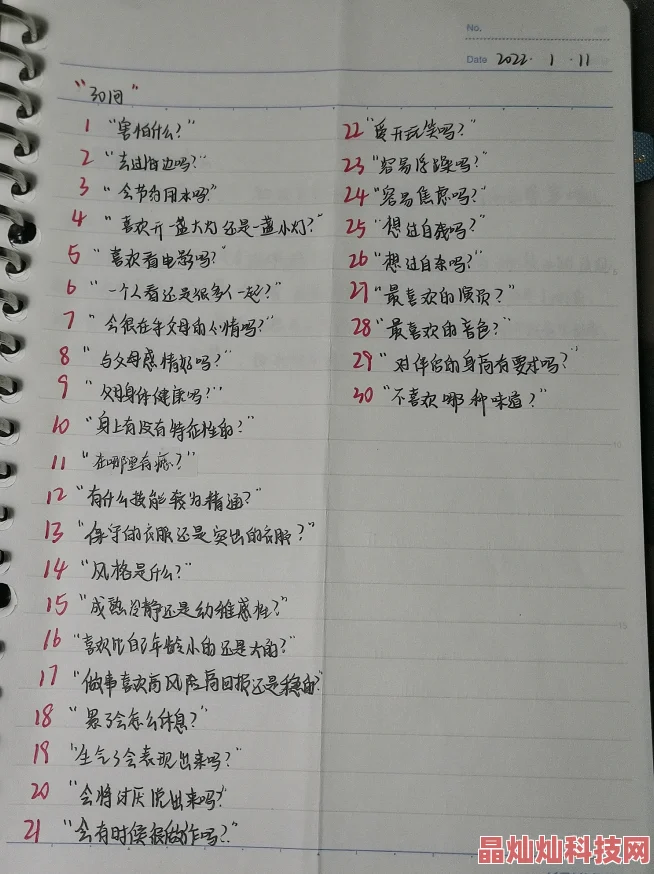 No.
Date 2022. 1. 11
"30问"
1 "害怕什么？"
2 "去过海边吗？"
3 "会节约用水吗？"
4 "喜欢开一盏大灯还是一盏小灯？"
5 "喜欢看电影吗？"
6 "一个人看还是很多人一起？"
7 "会很在乎父母的心情吗？"
8 "与父母感情好吗？"
9 "父母身体健康吗？"
10 "身上有没有特征性的？"
11 "在哪里有痣？"
12 "有什么技能较为精通？"
13 "保守的衣服还是突出的衣服？"
14 "风格是什么？"
15 "成熟冷静还是幼稚感性？"
16 "喜欢比自己年龄小的还是大的？"
17 "做事喜欢高风险高回报还是稳的？"
18 "累了会怎么休息？"
19 "生气了会表现出来吗？"
20 "会将讨厌说出来吗？"
21 "会有时候很做作吗？"
22 "爱开玩笑吗？"
23 "容易浮躁吗？"
24 "容易焦虑吗？"
25 "想过自残吗？"
26 "想过自杀吗？"
27 "最喜欢的演员？"
28 "最喜欢的音色？"
29 "对伴侣的身高有要求吗？"
30 "不喜欢哪种味道？"
晶灿灿科技网